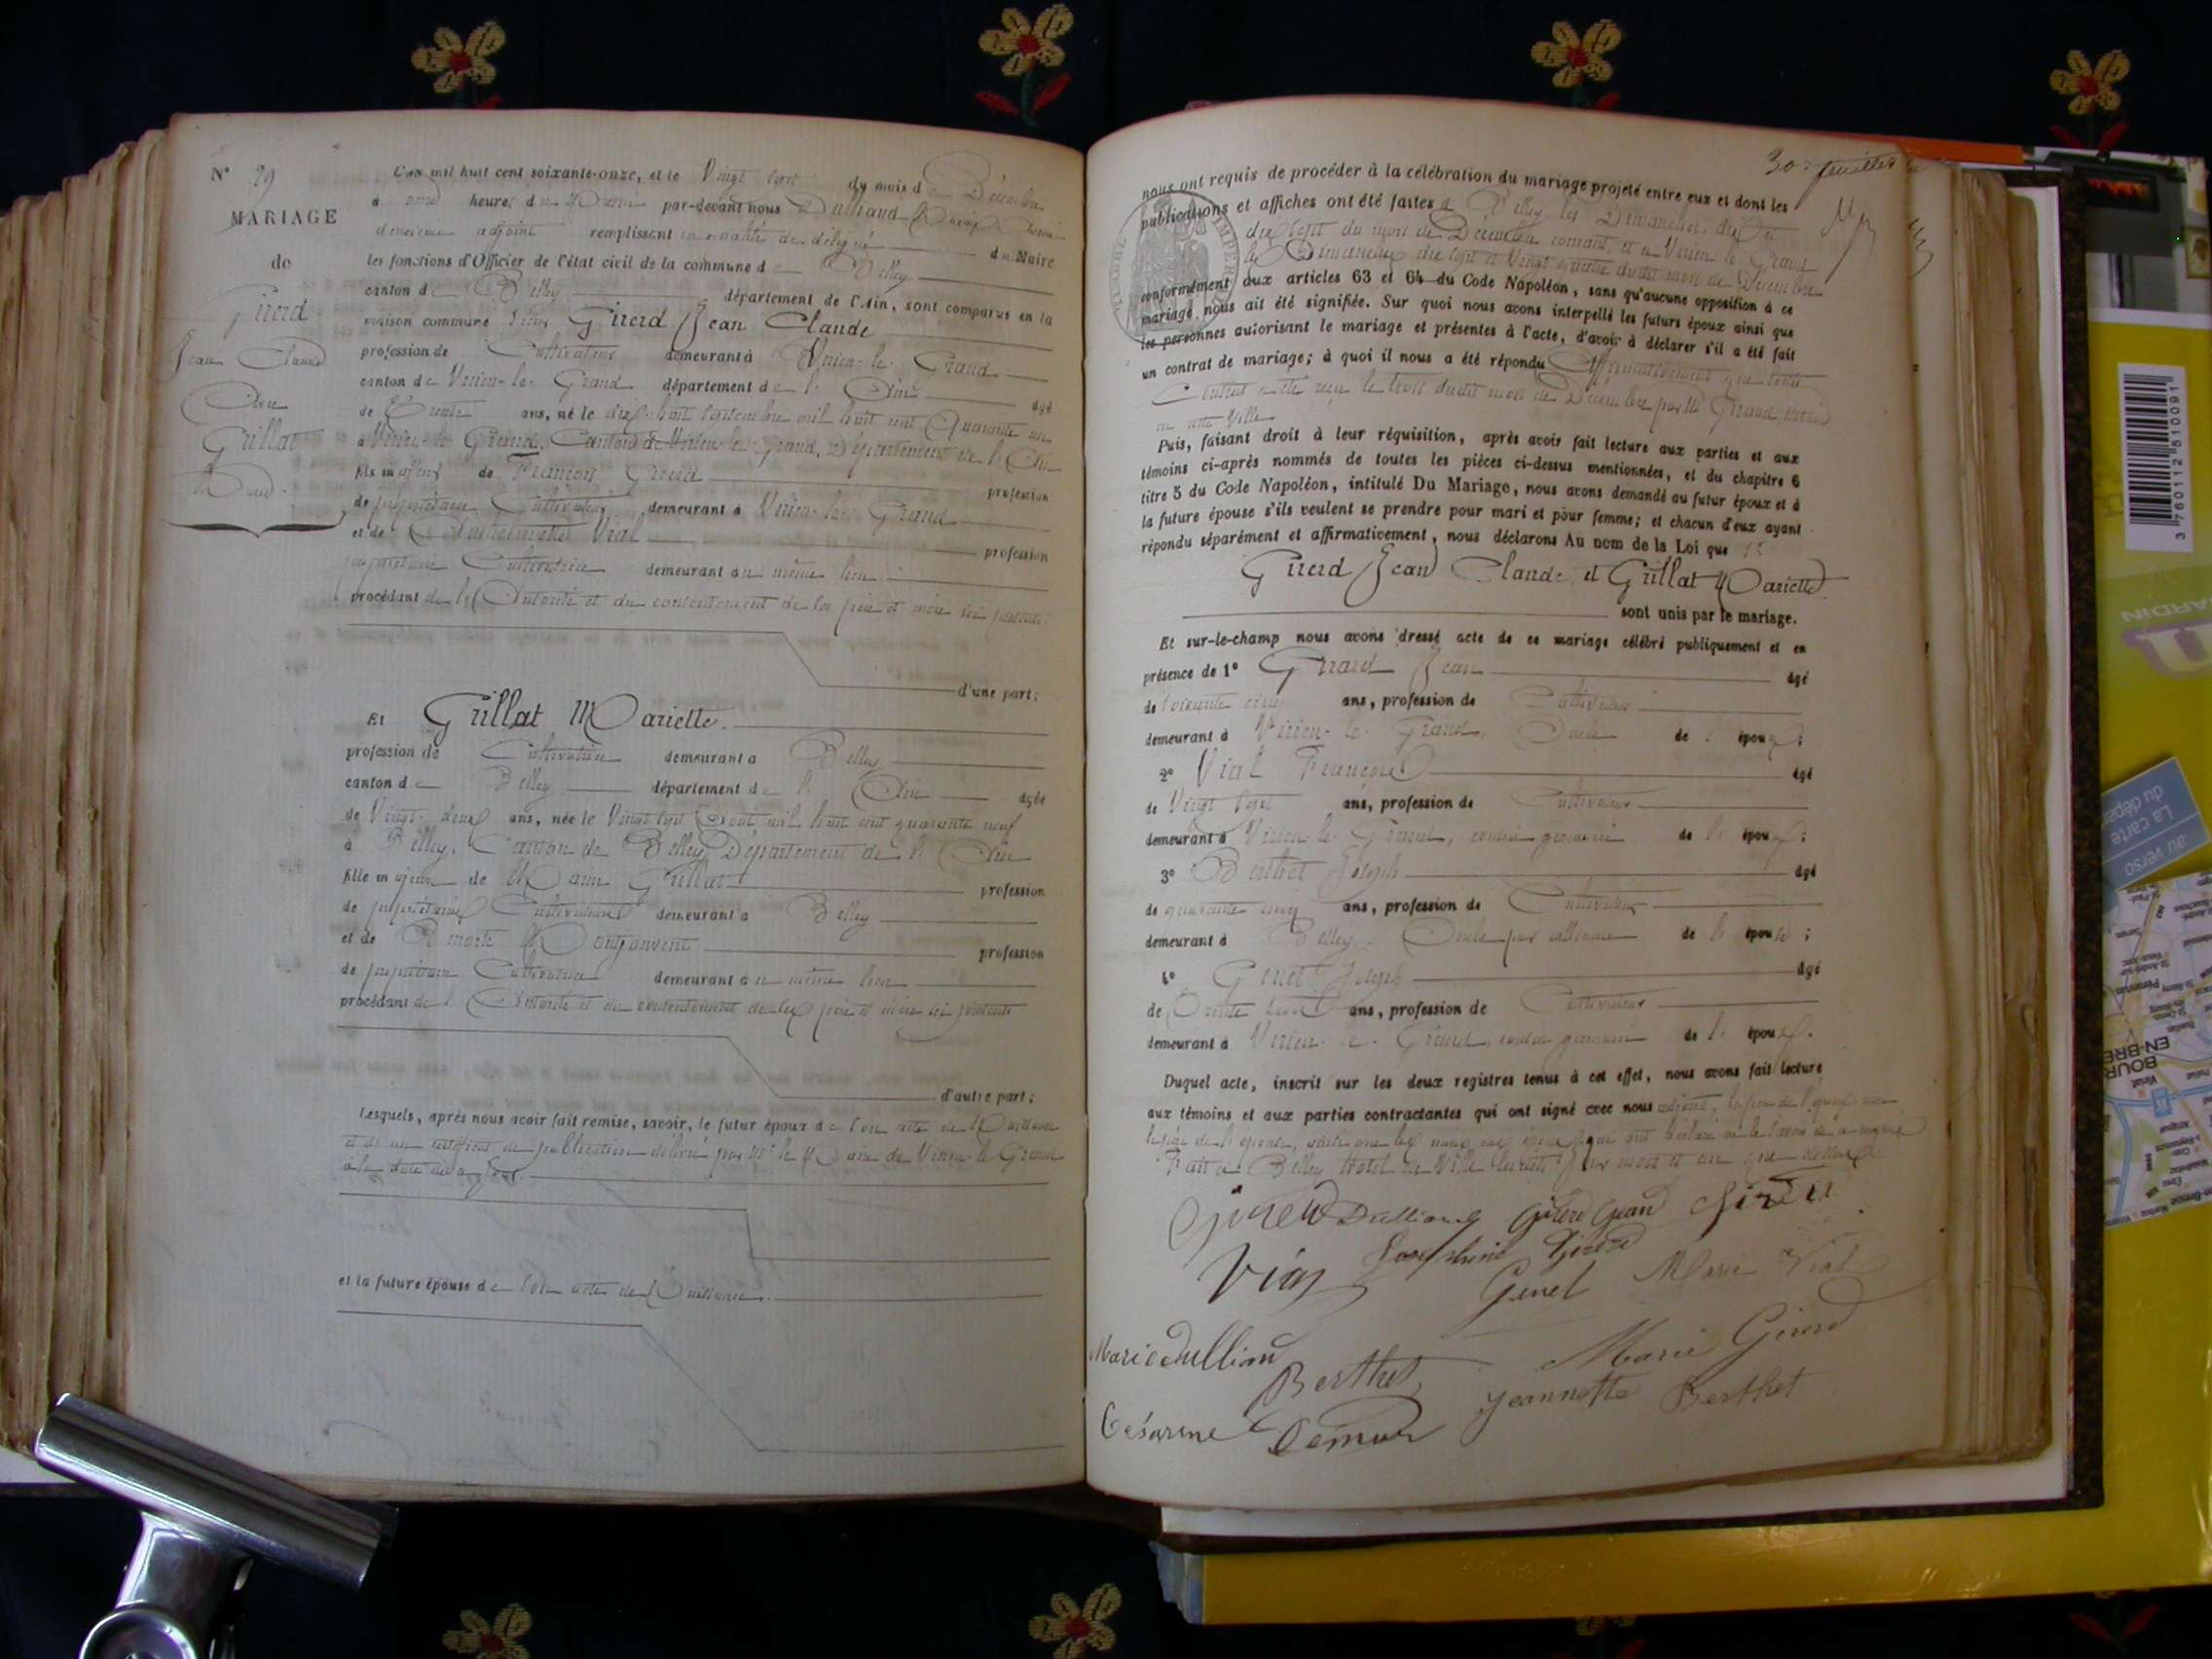 N° 29
MARIAGE
de
Girerd
Jean Claude
Avec
Grillat
Mariette
L'an mil huit cent soixante-onze, et le Vingt sept du mois de Décembre
à onze heures du Matin par-devant nous Dulliand
deuxième adjoint remplissant en qualité de délégué du Maire
les fonctions d'Officier de l'état civil de la commune de Belley
canton de Belley département de l'Ain, sont comparus en la
maison commune Sieur Girerd Jean Claude
profession de Cultivateur demeurant à Virieu-le-Grand
canton de Virieu-le-Grand département de l'Ain âgé
de Trente ans, né le dix-huit septembre mil huit cent Quarante un
à Virieu-le-Grand, Canton de Virieu-le-Grand, Département de l'Ain
fils majeur de François Girerd profession
de propriétaire Cultivateur demeurant à Virieu-le-Grand
et de Anthelmette Vial profession
propriétaire Cultivatrice demeurant au même lieu
procédant de l'Autorité et du consentement de ses père et mère ici présents
d'une part;
Et Grillat Mariette.
profession de Cultivatrice demeurant à Belley
canton de Belley département de l'Ain âgée
de Vingt-deux ans, née le Vingt sept Août mil huit cent quarante neuf
à Belley, Canton de Belley, Département de l'Ain
fille majeure de Grillat profession
de propriétaire Cultivateur demeurant à Belley
et de Benoite Montjouvent profession
de propriétaire Cultivatrice demeurant au même lieu
procédant de l'Autorité et du consentement de ses père et mère ici présents
d'autre part;
Lesquels, après nous avoir fait remise, savoir, le futur époux de son acte de Naissance
et de un certificat de publication délivré par Mr le Maire de Virieu-le-Grand
à la date de ce jour.
et la future épouse de son acte de Naissance.
30e feuillet
nous ont requis de procéder à la célébration du mariage projeté entre eux et dont les
publications et affiches ont été faites à Belley les Dimanches dix et
dix sept du mois de Décembre courant et à Virieu-le-Grand
les Dimanches dix sept et Vingt quatre dudit mois de Décembre
conformément aux articles 63 et 64 du Code Napoléon, sans qu'aucune opposition à ce
mariage nous ait été signifiée. Sur quoi nous avons interpellé les futurs époux ainsi que
les personnes autorisant le mariage et présentes à l'acte, d'avoir à déclarer s'il a été fait
un contrat de mariage; à quoi il nous a été répondu Affirmativement que ledit
Contrat a été reçu le trois dudit mois de Décembre par Me Girard, notaire
en cette Ville
Puis, faisant droit à leur réquisition, après avoir fait lecture aux parties et aux
témoins ci-après nommés de toutes les pièces ci-dessus mentionnées, et du chapitre 6
titre 5 du Code Napoléon, intitulé Du Mariage, nous avons demandé au futur époux et à
la future épouse s'ils veulent se prendre pour mari et pour femme; et chacun d'eux ayant
répondu séparément et affirmativement, nous déclarons Au nom de la Loi que
Girerd Jean Claude et Grillat Mariette
sont unis par le mariage.
Et sur-le-champ nous avons dressé acte de ce mariage célébré publiquement et en
présence de 1° Girard Jean âgé
de soixante cinq ans, profession de Cultivateur
demeurant à Virieu-le-Grand, Oncle de l'époux;
2° Vial François âgé
de Vingt sept ans, profession de Cultivateur
demeurant à Virieu-le-Grand, cousin germain de l'époux;
3° Berthet Joseph âgé
de quarante cinq ans, profession de Cultivateur
demeurant à Belley, Oncle par alliance de l'épouse;
4° Genet Joseph âgé
de Trente trois ans, profession de Cultivateur
demeurant à Virieu-le-Grand, cousin germain de l'époux.
Duquel acte, inscrit sur les deux registres tenus à cet effet, nous avons fait lecture
aux témoins et aux parties contractantes qui ont signé avec nous
Fait à Belley Hotel de Ville
Girerd Dulliand Girerd Jean Girerd
Vial Josephine Girerd
Genet Marie Vial
Marie Dulliand Marie Girerd
Berthet Jeannette Berthet
Césarine
3 760112 510091
JARDIN
La carte
au verso
BOURG
EN-BRE